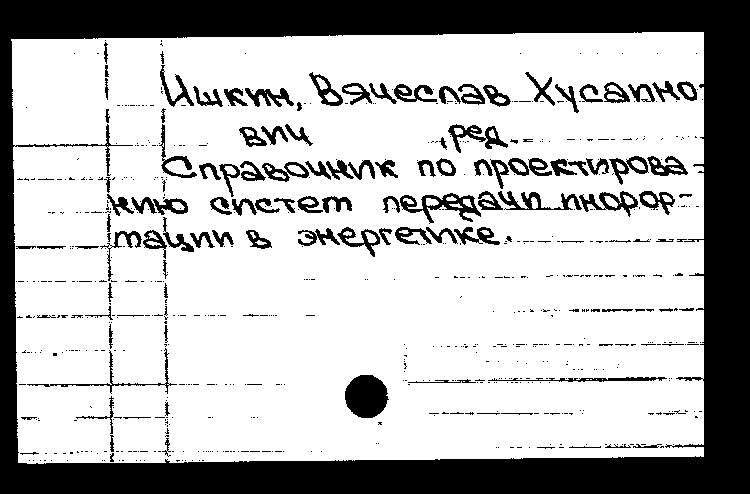 Ишкин, Вячеслав Хусаино-
вич ,ред.
Справочник по проектирова-
нию систем передачи инорор-
тации в энергетике.